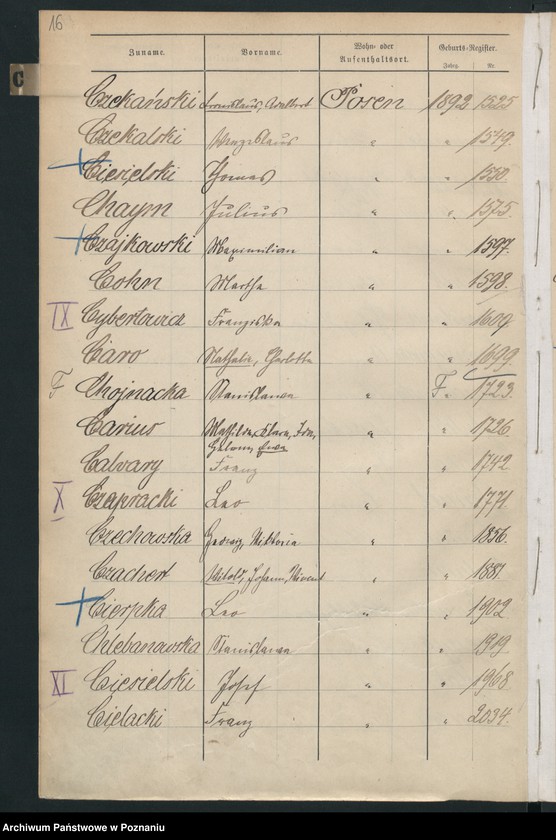 16
Zuname. Vorname. Wohn- oder Aufenthaltsort. Geburts-Register.
Jahrg. Nr.
C
Czekański Adalbert Posen 1892 1525
Czekalski " " 1549.
Ciesielski Thomas " " 1550.
Chaym Julius " " 1575.
Czajkowski Maximilian " " 1597.
Cohn Martha " " 1598.
IX Cybertowicz Franziska " " 1609
Caro Nathalie, Charlotte " " 1699
F Chojnacka Stanislawa " F. 1723.
Carius Mathilde, Klara, Ida, " " 1726.
Calvary Franz " " 1742
X Czapracki Leo " " 1771.
Czechowska Hedwig, Viktoria " " 1856.
Czachert Witold, Johann, Vincent " " 1881.
Cierpka Leo " " 1902
Chlebanowska Stanislawa " " 1919.
XI Ciesielski Josef " " 1968
Cielacki Franz " " 2034.
Archiwum Państwowe w Poznaniu